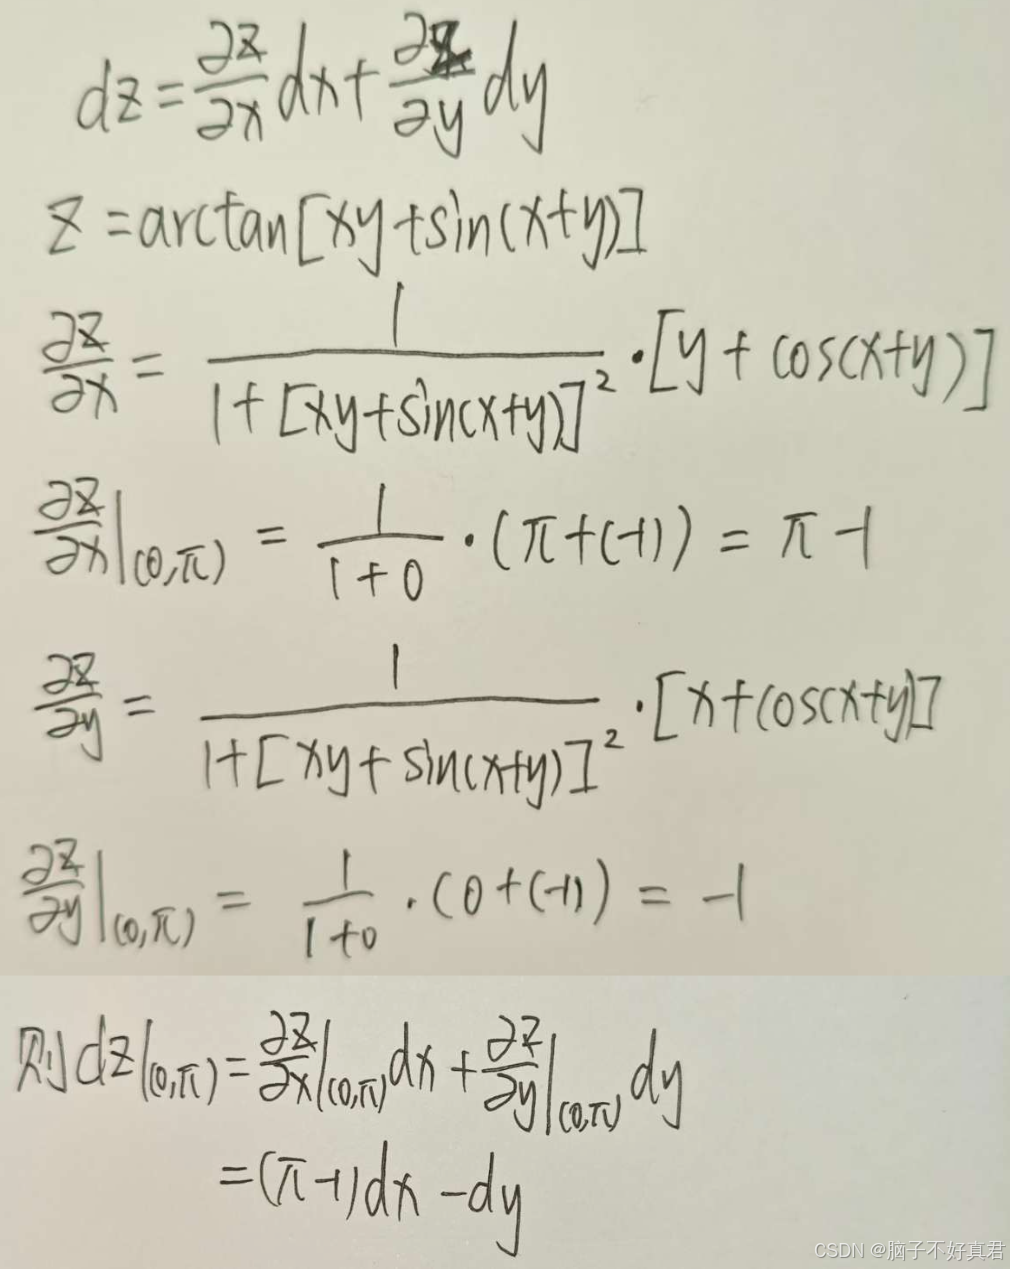 dz = ∂z/∂x dx + ∂z/∂y dy
z = arctan[xy+sin(x+y)]
∂z/∂x = 1/(1+[xy+sin(x+y)]²) · [y + cos(x+y)]
∂z/∂x|(0,π) = 1/(1+0) · (π+(-1)) = π-1
∂z/∂y = 1/(1+[xy+sin(x+y)]²) · [x+cos(x+y)]
∂z/∂y|(0,π) = 1/(1+0) · (0+(-1)) = -1
则dz|(0,π) = ∂z/∂x|(0,π) dx + ∂z/∂y|(0,π) dy
= (π-1)dx - dy
CSDN @脑子不好真君